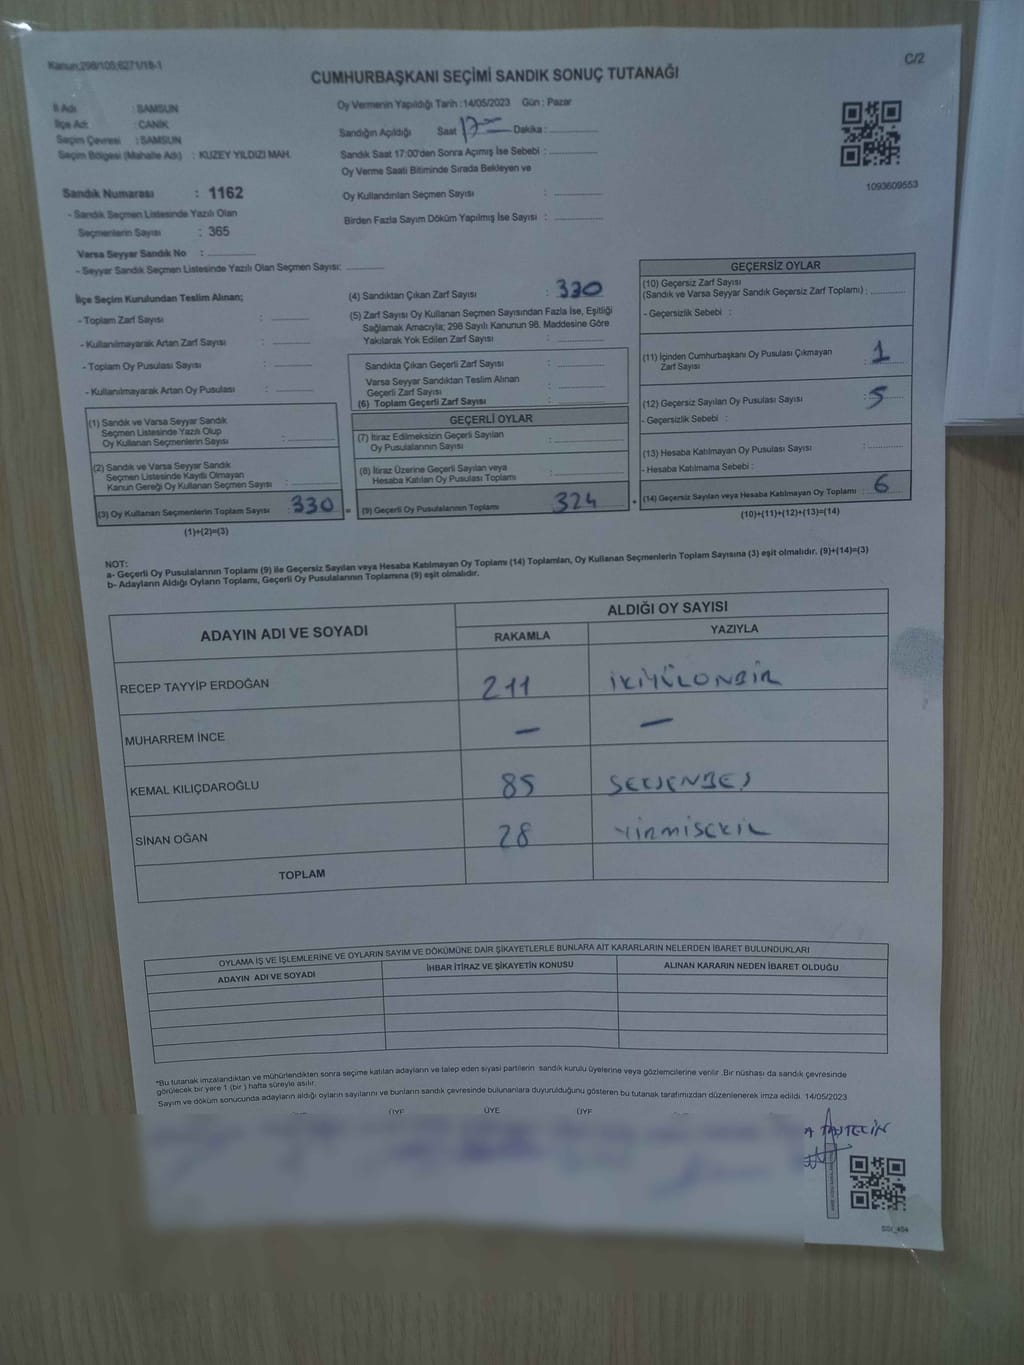 Kanun;298/105;6271/18-1
C/2
CUMHURBAŞKANI SEÇİMİ SANDIK SONUÇ TUTANAĞI
İl Adı : SAMSUN
İlçe Adı : CANİK
Seçim Çevresi : SAMSUN
Seçim Bölgesi (Mahalle Adı) : KUZEY YILDIZI MAH.
Sandık Numarası : 1162
- Sandık Seçmen Listesinde Yazılı Olan
Seçmenlerin Sayısı : 365
Varsa Seyyar Sandık No : ............
- Seyyar Sandık Seçmen Listesinde Yazılı Olan Seçmen Sayısı: ............
Oy Vermenin Yapıldığı Tarih : 14/05/2023 Gün : Pazar
Sandığın Açıldığı Saat 17 Dakika : ............
Sandık Saat 17:00'den Sonra Açımış İse Sebebi : ............
Oy Verme Saati Bitiminde Sırada Bekleyen ve
Oy Kullandırılan Seçmen Sayısı : ............
Birden Fazla Sayım Döküm Yapılmış İse Sayısı : ............
1093609553
İlçe Seçim Kurulundan Teslim Alınan;
- Toplam Zarf Sayısı : ............
- Kullanılmayarak Artan Zarf Sayısı : ............
- Toplam Oy Pusulası Sayısı : ............
- Kullanılmayarak Artan Oy Pusulası : ............
(1) Sandık ve Varsa Seyyar Sandık
Seçmen Listesinde Yazılı Olup
Oy Kullanan Seçmenlerin Sayısı : ............
(2) Sandık ve Varsa Seyyar Sandık
Seçmen Listesinde Kayıtlı Olmayan
Kanun Gereği Oy Kullanan Seçmen Sayısı : ............
(3) Oy Kullanan Seçmenlerin Toplam Sayısı : 330
(1)+(2)=(3)
(4) Sandıktan Çıkan Zarf Sayısı : 330
(5) Zarf Sayısı Oy Kullanan Seçmen Sayısından Fazla İse, Eşitliği
Sağlamak Amacıyla; 298 Sayılı Kanunun 98. Maddesine Göre
Yakılarak Yok Edilen Zarf Sayısı : ............
Sandıkta Çıkan Geçerli Zarf Sayısı : ............
Varsa Seyyar Sandıktan Teslim Alınan
Geçerli Zarf Sayısı : ............
(6) Toplam Geçerli Zarf Sayısı : ............
GEÇERLİ OYLAR
(7) İtiraz Edilmeksizin Geçerli Sayılan
Oy Pusulalarının Sayısı : ............
(8) İtiraz Üzerine Geçerli Sayılan veya
Hesaba Katılan Oy Pusulası Toplamı : ............
= (9) Geçerli Oy Pusulalarının Toplamı : 324
GEÇERSİZ OYLAR
(10) Geçersiz Zarf Sayısı
(Sandık ve Varsa Seyyar Sandık Geçersiz Zarf Toplamı) : ............
- Geçersizlik Sebebi :
(11) İçinden Cumhurbaşkanı Oy Pusulası Çıkmayan
Zarf Sayısı : 1
(12) Geçersiz Sayılan Oy Pusulası Sayısı : 5
- Geçersizlik Sebebi :
(13) Hesaba Katılmayan Oy Pusulası Sayısı : ............
- Hesaba Katılmama Sebebi :
+ (14) Geçersiz Sayılan veya Hesaba Katılmayan Oy Toplamı : 6
(10)+(11)+(12)+(13)=(14)
NOT:
a- Geçerli Oy Pusulalarının Toplamı (9) ile Geçersiz Sayılan veya Hesaba Katılmayan Oy Toplamı (14) Toplamları, Oy Kullanan Seçmenlerin Toplam Sayısına (3) eşit olmalıdır. (9)+(14)=(3)
b- Adayların Aldığı Oyların Toplamı, Geçerli Oy Pusulalarının Toplamına (9) eşit olmalıdır.
ADAYIN ADI VE SOYADI
ALDIĞI OY SAYISI
RAKAMLA YAZIYLA
RECEP TAYYİP ERDOĞAN 211 İKİYÜZONBİR
MUHARREM İNCE — —
KEMAL KILIÇDAROĞLU 85 SEKSENBEŞ
SİNAN OĞAN 28 YİRMİSEKİZ
TOPLAM
OYLAMA İŞ VE İŞLEMLERİNE VE OYLARIN SAYIM VE DÖKÜMÜNE DAİR ŞİKAYETLERLE BUNLARA AİT KARARLARIN NELERDEN İBARET BULUNDUKLARI
ADAYIN ADI VE SOYADI İHBAR İTİRAZ VE ŞİKAYETİN KONUSU ALINAN KARARIN NEDEN İBARET OLDUĞU
*Bu tutanak imzalandıktan ve mühürlendikten sonra seçime katılan adayların ve talep eden siyasi partilerin sandık kurulu üyelerine veya gözlemcilerine verilir .Bir nüshası da sandık çevresinde
görülecek bir yere 1 (bir ) hafta süreyle asılır.
Sayım ve döküm sonucunda adayların aldığı oyların sayılarını ve bunların sandık çevresinde bulunanlara duyurulduğunu gösteren bu tutanak tarafımızdan düzenlenerek imza edildi. 14/05/2023
ÜYE ÜYE ÜYE